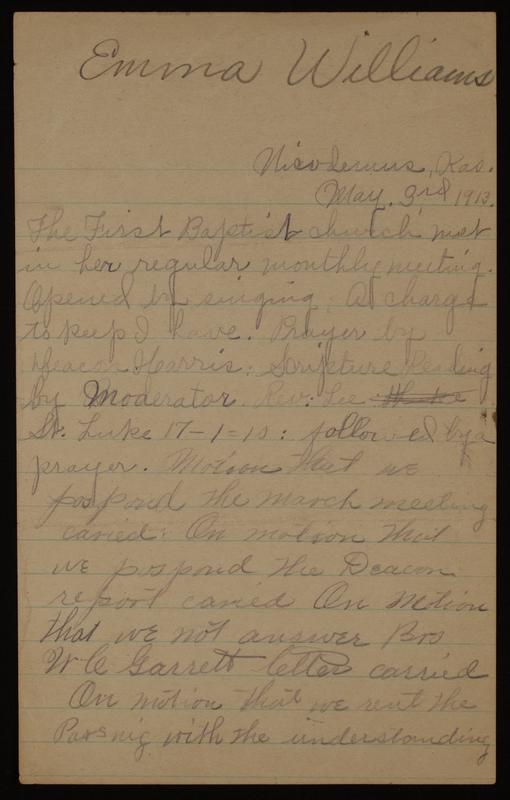 Emma Williams
Nicodemus, Kas.
May. 3rd 1913.
The First Baptist church met
in her regular monthly meeting.
Opened by singing. A charge
to keep I have. Prayer by
Deacon Harris; Scripture Reading
by Moderator. Rev. Lee
St. Luke 17-1=10: followed by a
prayer. Motion that we
pospond the march meeting
caried: On motion that
we pospond the Deacon
report caried On Motion
that we not answer Bro
W C Garrett letter carried
On motion that we rent the
Parsnig with the understanding